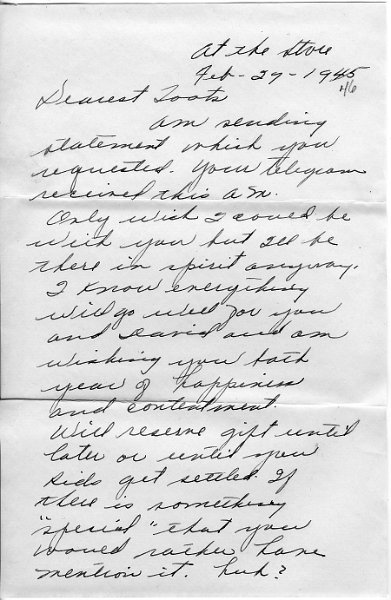 At the Store
Feb - 27 - 1945
46
Dearest Toots
am sending
statement which you
requested. Your telegram
received this a.m.
Only wish I could be
with you but I'll be
there in spirit anyway.
I know everything
will go well for you
and David and am
wishing you both
year of happiness
and contentment.
Will reserve gift until
later or until you
kids get settled. If
there is something
"special" that you
would rather have
mention it. huh?